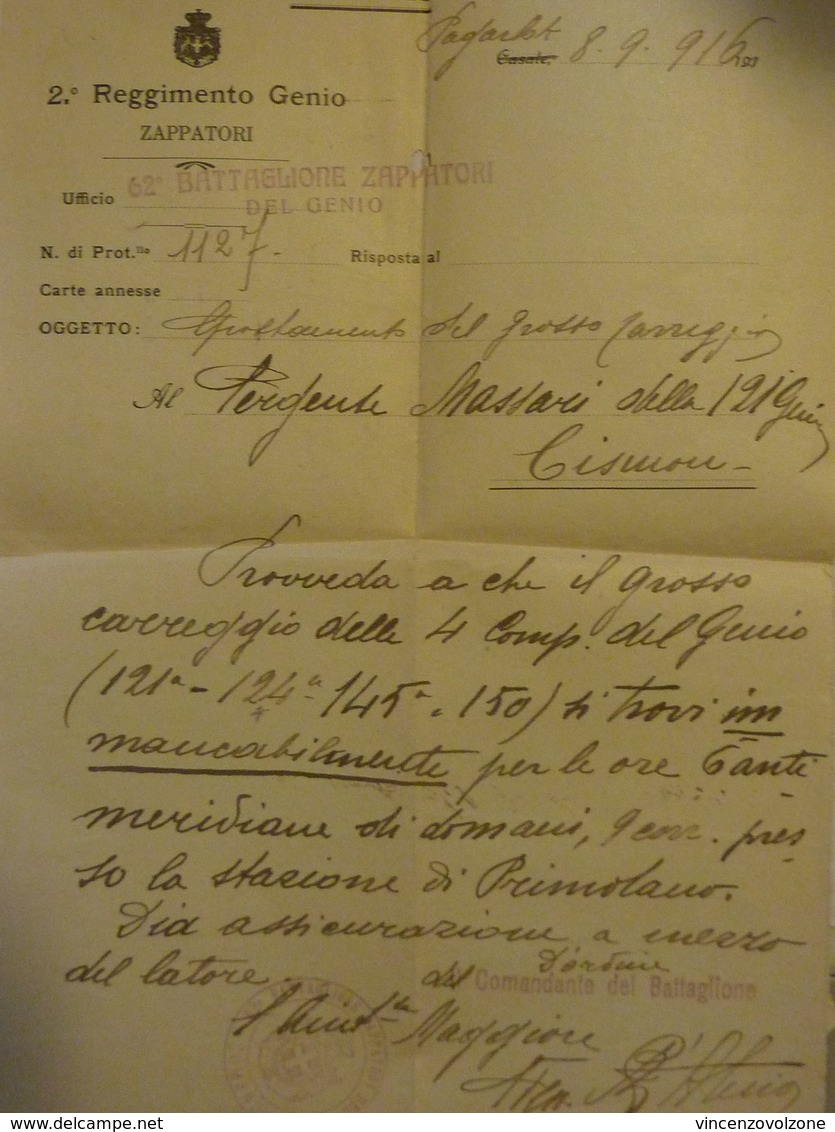 Casale, 8. 9. 916
2.° Reggimento Genio
ZAPPATORI
Ufficio 62° BATTAGLIONE ZAPPATORI
DEL GENIO
N. di Prot.llo 1127.- Risposta al
Carte annesse
OGGETTO: Spostamento del grosso carreggio
Al Sergente Massari della 121 Genio
Cismon -
Provveda a che il grosso
carreggio delle 4 Comp. del Genio
(121a - 124a - 145a - 150) si trovi im
mancabilmente per le ore 6 anti
meridiane di domani, 9 corr. pres
so la stazione di Primolano.
Dia assicurazione a mezzo
del latore.
D'ordine
del Comandante del Battaglione
l'Aiut.te Maggiore
vincenzovolzone